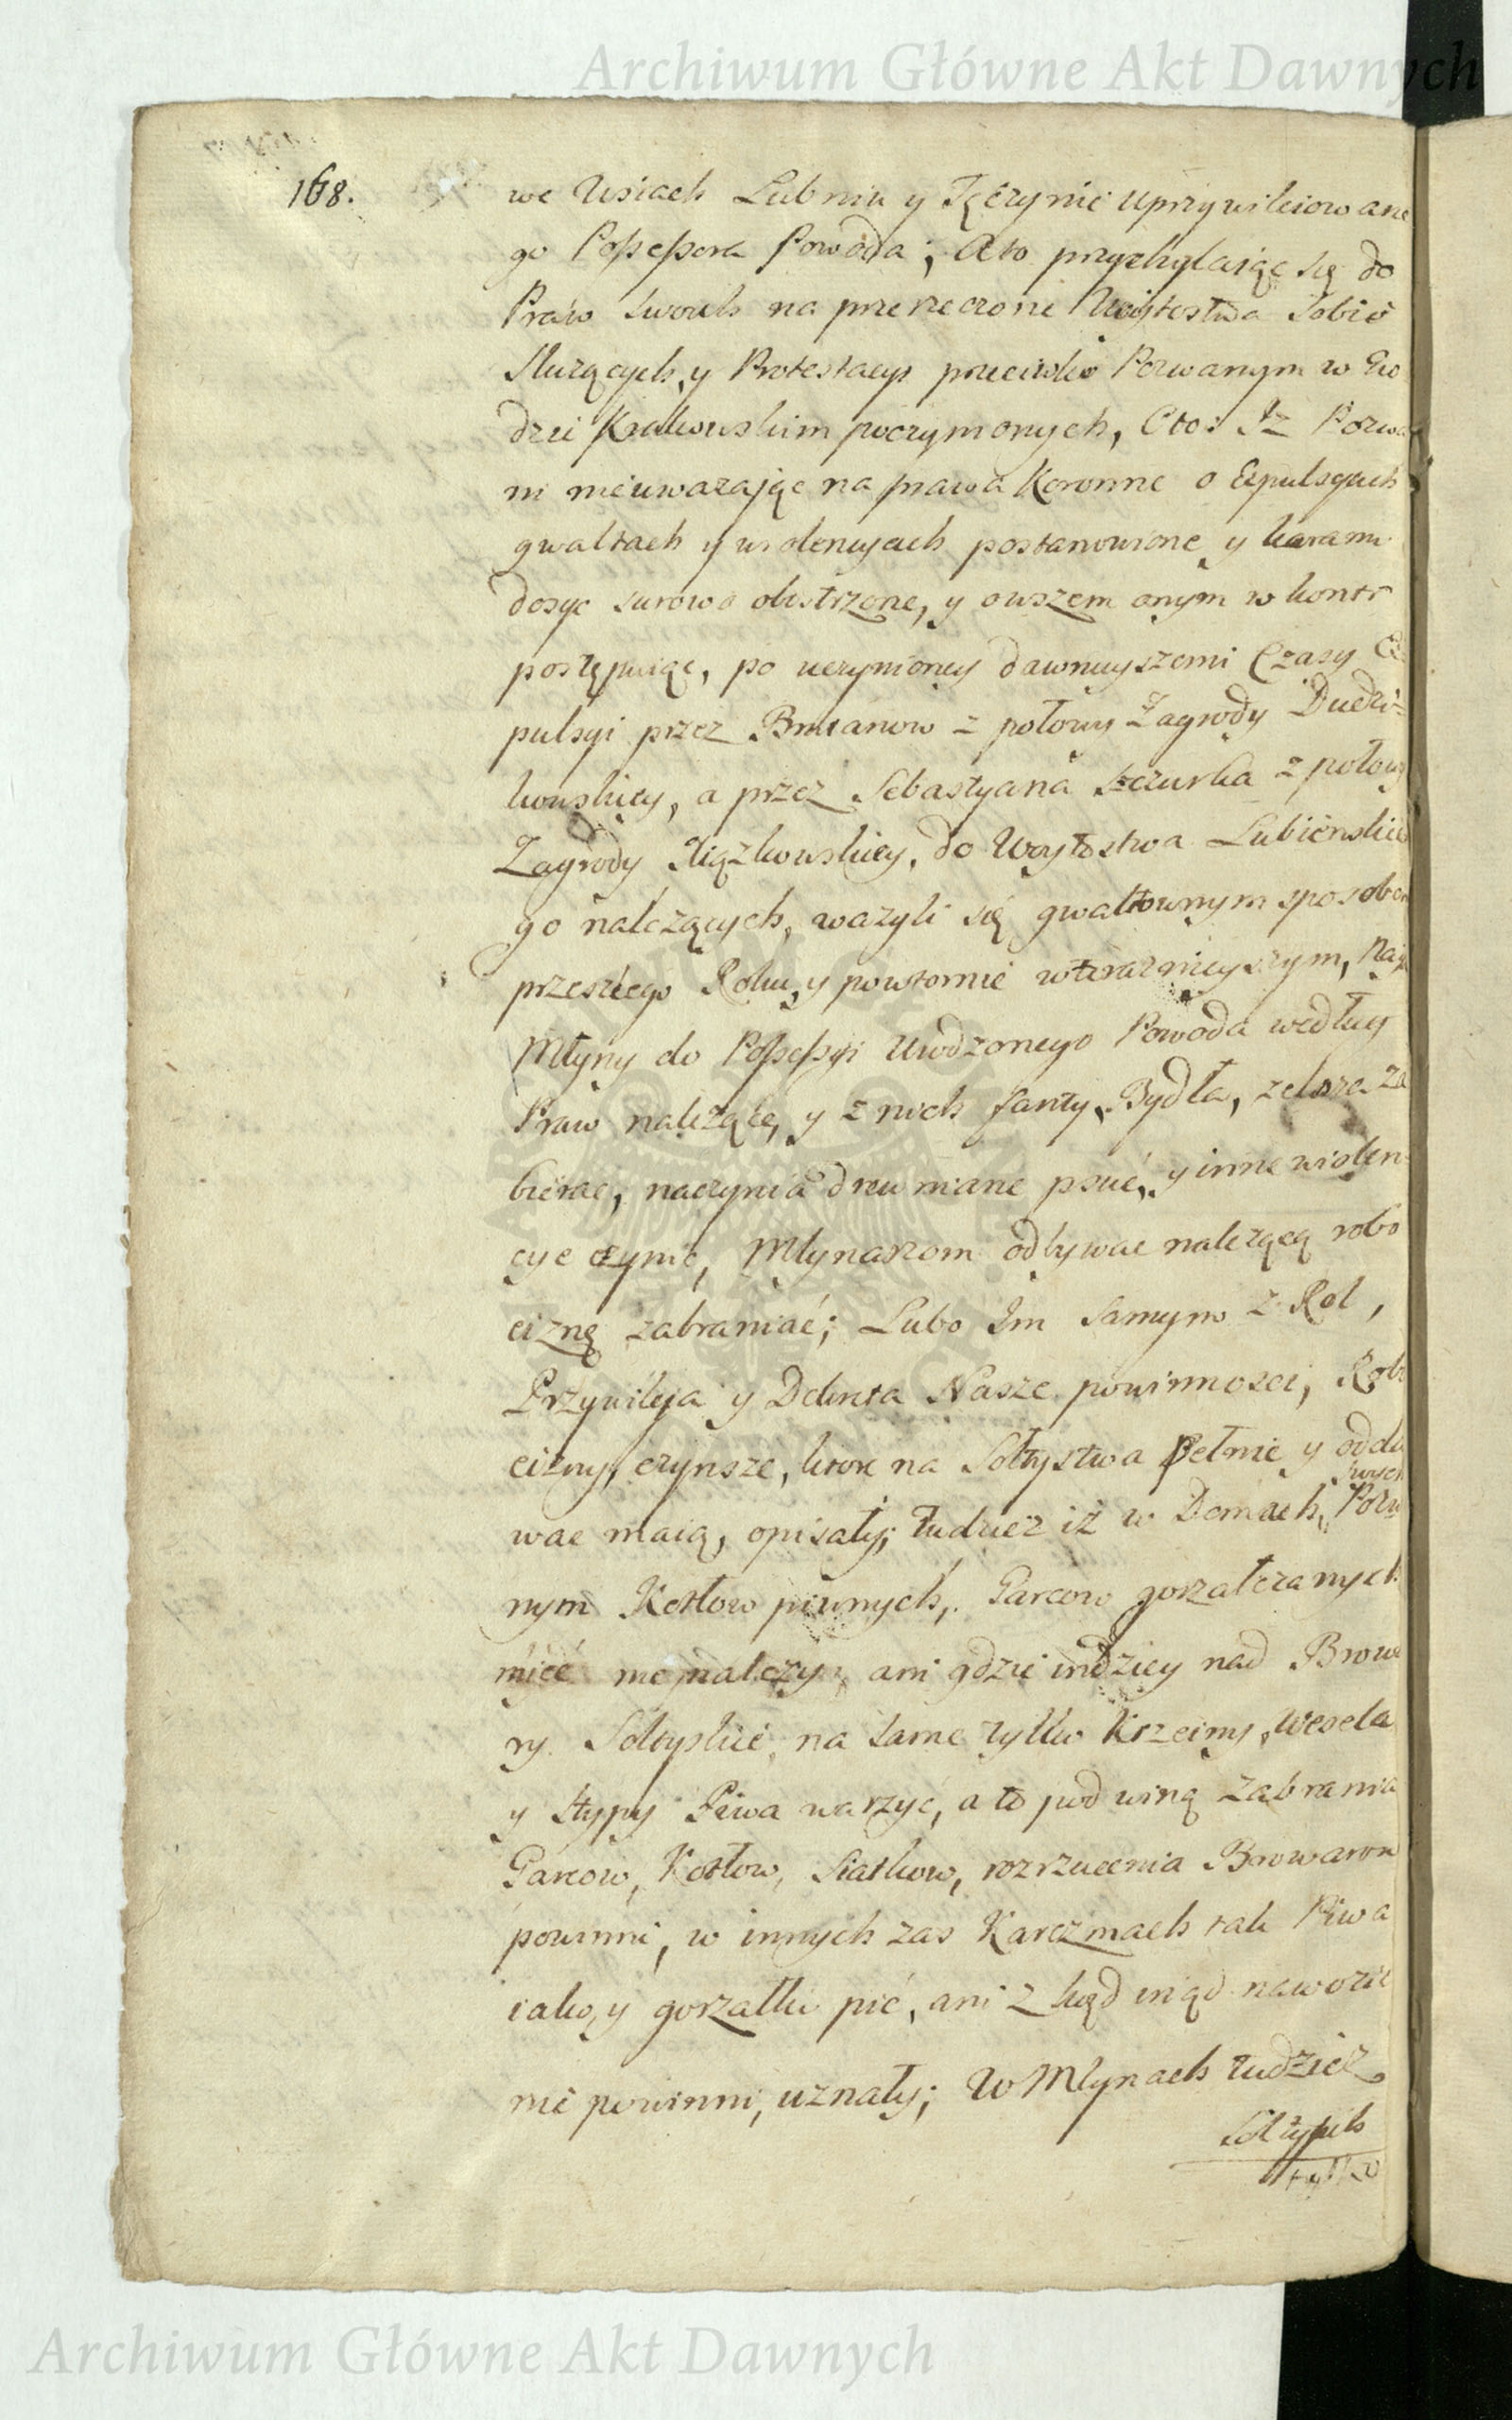 Archiwum Główne Akt Dawnych
168.
we Wsiach Lubniu y Tęczynie uprzywileiowane
go Possessora Powoda; Ato przychylaiąc się do
Praw swoich na przerzeczone Woytostwa sobie
służących, y Protestacyi przeciwko Pozwanym w Gro
dzie Krakowskim poczynionych, Oto: Iz Pozwa
ni nieuwazając na prawa Koronne o Expulsyach
gwałtach y wiolencyach postanowione y karami
dosyc surowo obostrzone, y owszem onym w kontr
postępuiąc, po uczynioney dawnieyszemi Czasy Ex
pulsyi przez z połowy Zagrody Dudzi=
kowskiey, a przez Sebastyana Szczurka z połowy
Zagrody Xiązkowskiey, do Woytostwa Lubienskie
go nalezących, wazyli się gwałtownym sposobem
przeszłego Roku, y powtornie wteraznieyszym, Nay
Młyny do Possessyi Uwodzonego Powoda według
Praw należące, y z nich fanty, Bydła, zelaza za
bierac, naczynia drewniane psuć, y inne wiolen
cye czynic, Młynarzom odbywac nalezącą robo
ciznę zabraniać; Lubo Im samym z Rol,
Przywileja y Dekreta Nasze powinnosci, Robo
cizny, czynsze, ktore na Sołtystwa pełnic y odda
swych
wac maią, opisały; tudziez iż w Domach, Pozwa
nym Kotłow piwnych, Garcow gorzałczanych
mieć nie nalezy, ani gdzie indziey nad Browa
ry Sołtyskie, na same tylko Krzciny, Wesela
y Stypy Piwa warzyć, a to pod winą zabrania
Garcow, Kotłow, Statkow, rozrzucenia Browarow
powinni, w innych zas Karczmach tak Piwa
iako, y gorzałki pić, ani z kąd inąd nawozic
nie powinni, uznały; W Młynach tudziez
Sołtyskich
tylko
Archiwum Główne Akt Dawnych